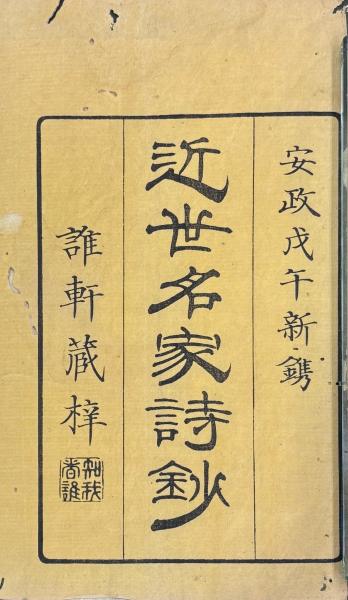 安政戊午新鐫
近世名家詩鈔
誰軒蔵梓
知我者誰